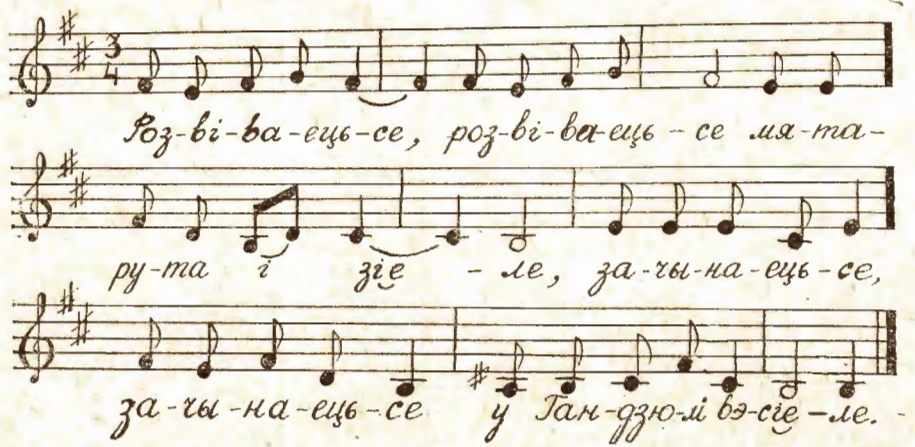 3
4
Роз-ві-ва-ець-се, роз-ві-ва-ець-се мя-та-
ру-та і зіе-ле, за-чы-на-ець-се,
за-чы-на-ець-се у Ган-дзю-лі вэ-сіе-ле.